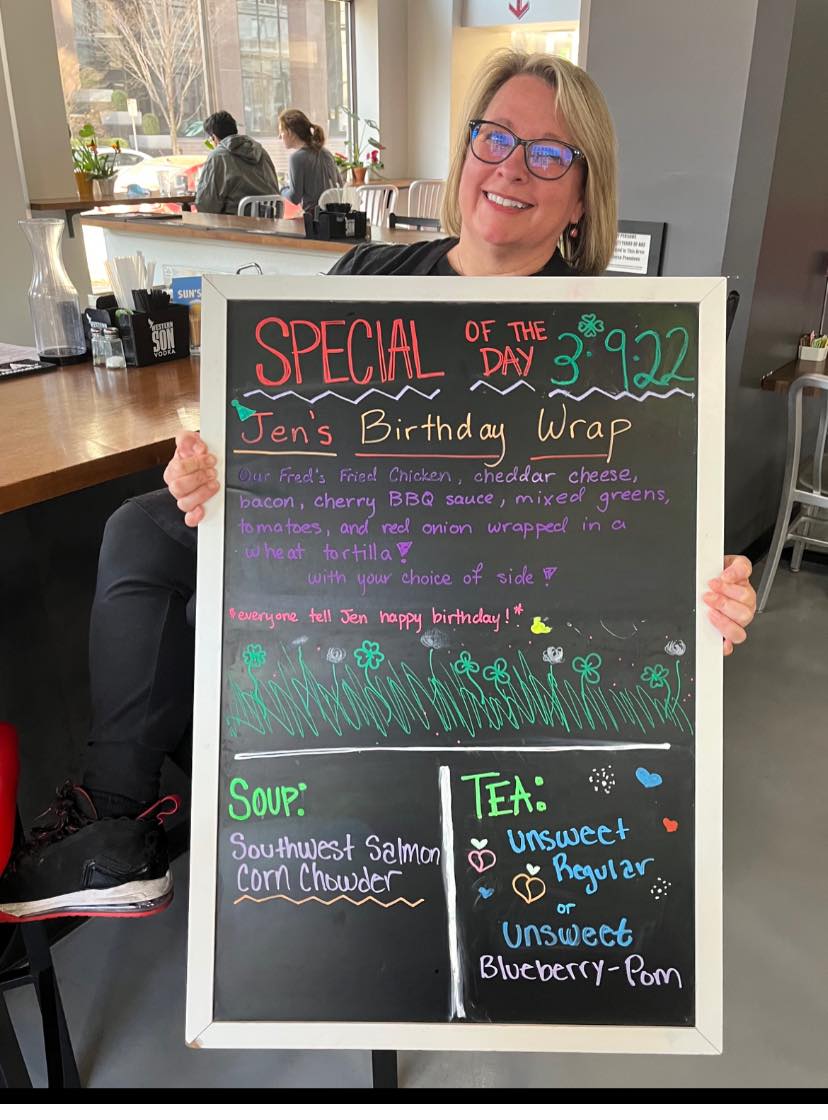 SPECIAL OF THE DAY 3.9.22
Jen's Birthday Wrap
Our Fred's Fried Chicken, cheddar cheese,
bacon, cherry BBQ sauce, mixed greens,
tomatoes, and red onion wrapped in a
wheat tortilla!
with your choice of side!
*everyone tell Jen happy birthday!*
SOUP:
Southwest Salmon
Corn Chowder
TEA:
Unsweet
Regular
or
Unsweet
Blueberry-Pom
SUN'S
WESTERN
SON
VODKA